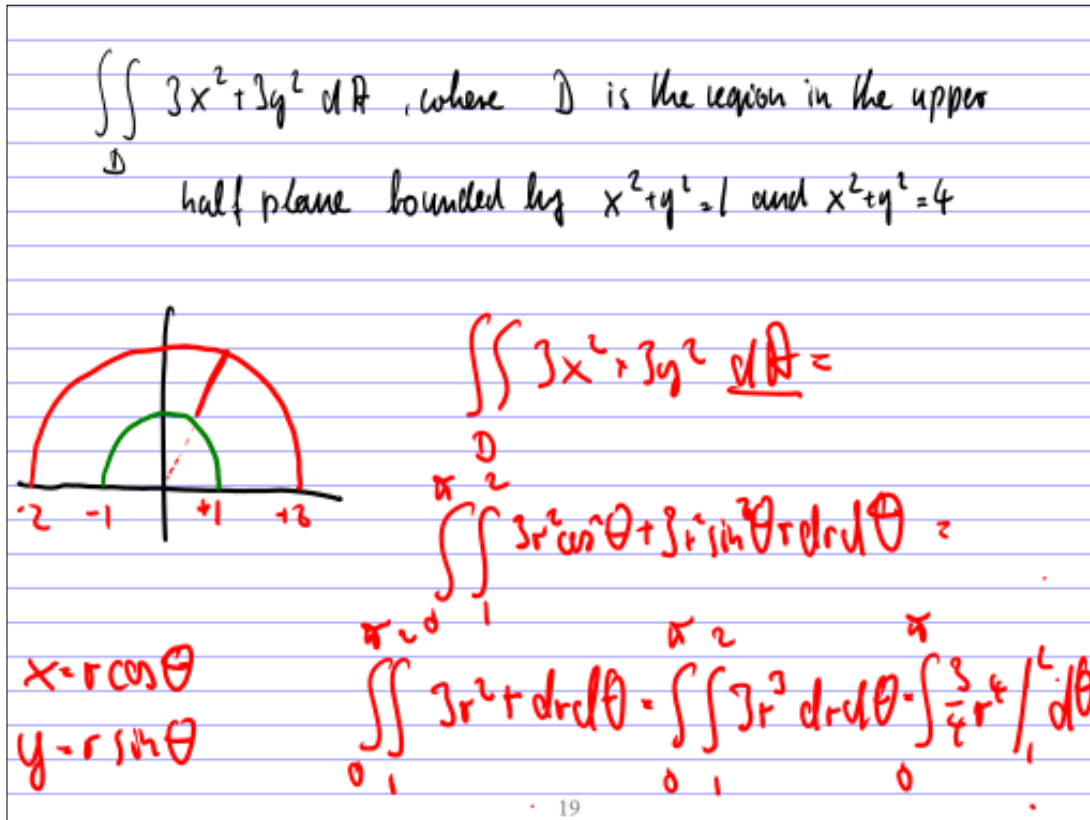 ∫∫_D 3x²+3y² dA, where D is the region in the upper
half plane bounded by x²+y²=1 and x²+y²=4
∫∫_D 3x²+3y² dA =
-2 -1 +1 +2
∫_0^π ∫_1^2 3r²cos²θ+3r²sin²θ r dr dθ =
x=r cosθ
∫_0^π ∫_1^2 3r² r dr dθ = ∫_0^π ∫_1^2 3r³ dr dθ = ∫_0^π 3/4 r⁴ /_1^2 dθ
y=r sinθ
19